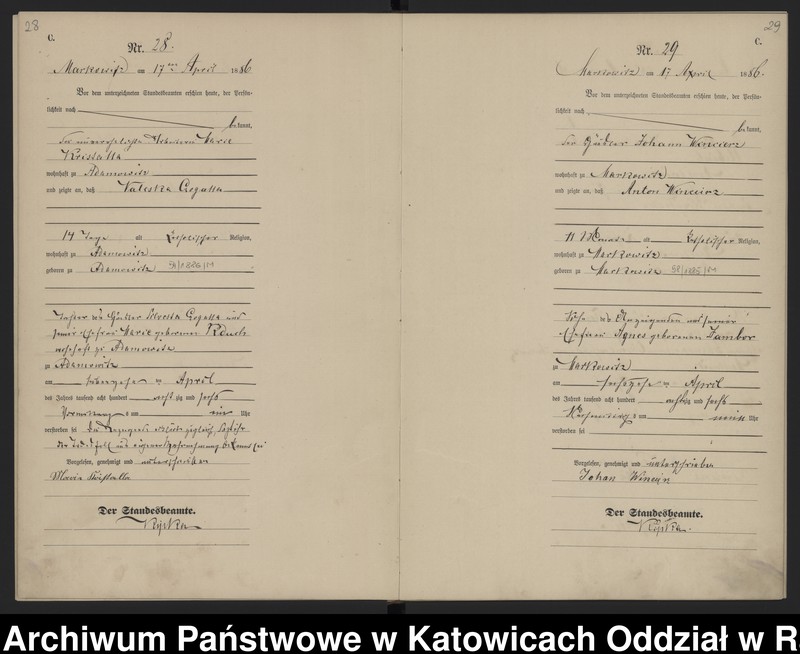 28
C.
Nr. 28.
Markowitz am 17ten April 1886
Vor dem unterzeichneten Standesbeamten erschien heute, der Persön-
lichkeit nach
bekannt,
die unverehelichte Marie
Kristalla
wohnhaft zu Adamowitz
und zeigte an, daß Valeska Czogalla
14 Tage alt katholischer Religion,
wohnhaft zu Adamowitz
geboren zu Adamowitz 34/1886/M
Tochter des Häusler Silvester Czogalla und
seiner Ehefrau Marie geborenen
wohnhaft zu Adamowitz
zu Adamowitz
am siebzehn ten April
des Jahres tausend acht hundert achtzig und sechs
Vormittags um ein Uhr
verstorben sei
Vorgelesen, genehmigt und unterschrieben
Maria Kristalla
Der Standesbeamte.
29
C.
Nr. 29
Markowitz am 17 April 1886.
Vor dem unterzeichneten Standesbeamten erschien heute, der Persön-
lichkeit nach
bekannt,
der Häusler Johann Wincierz
wohnhaft zu Markowitz
und zeigte an, daß Anton Wincierz
11 Monate alt katholischer Religion,
wohnhaft zu Markowitz
geboren zu Markowitz 58/1885/M
Sohn des Anzeigenden und seiner
Ehefrau Agnes geborenen Tambor
zu Markowitz
am sechszehn ten April
des Jahres tausend acht hundert achtzig und sechs
Nachmittags um neun Uhr
verstorben sei
Vorgelesen, genehmigt und unterschrieben
Johan
Der Standesbeamte.
Archiwum Państwowe w Katowicach Oddział w R